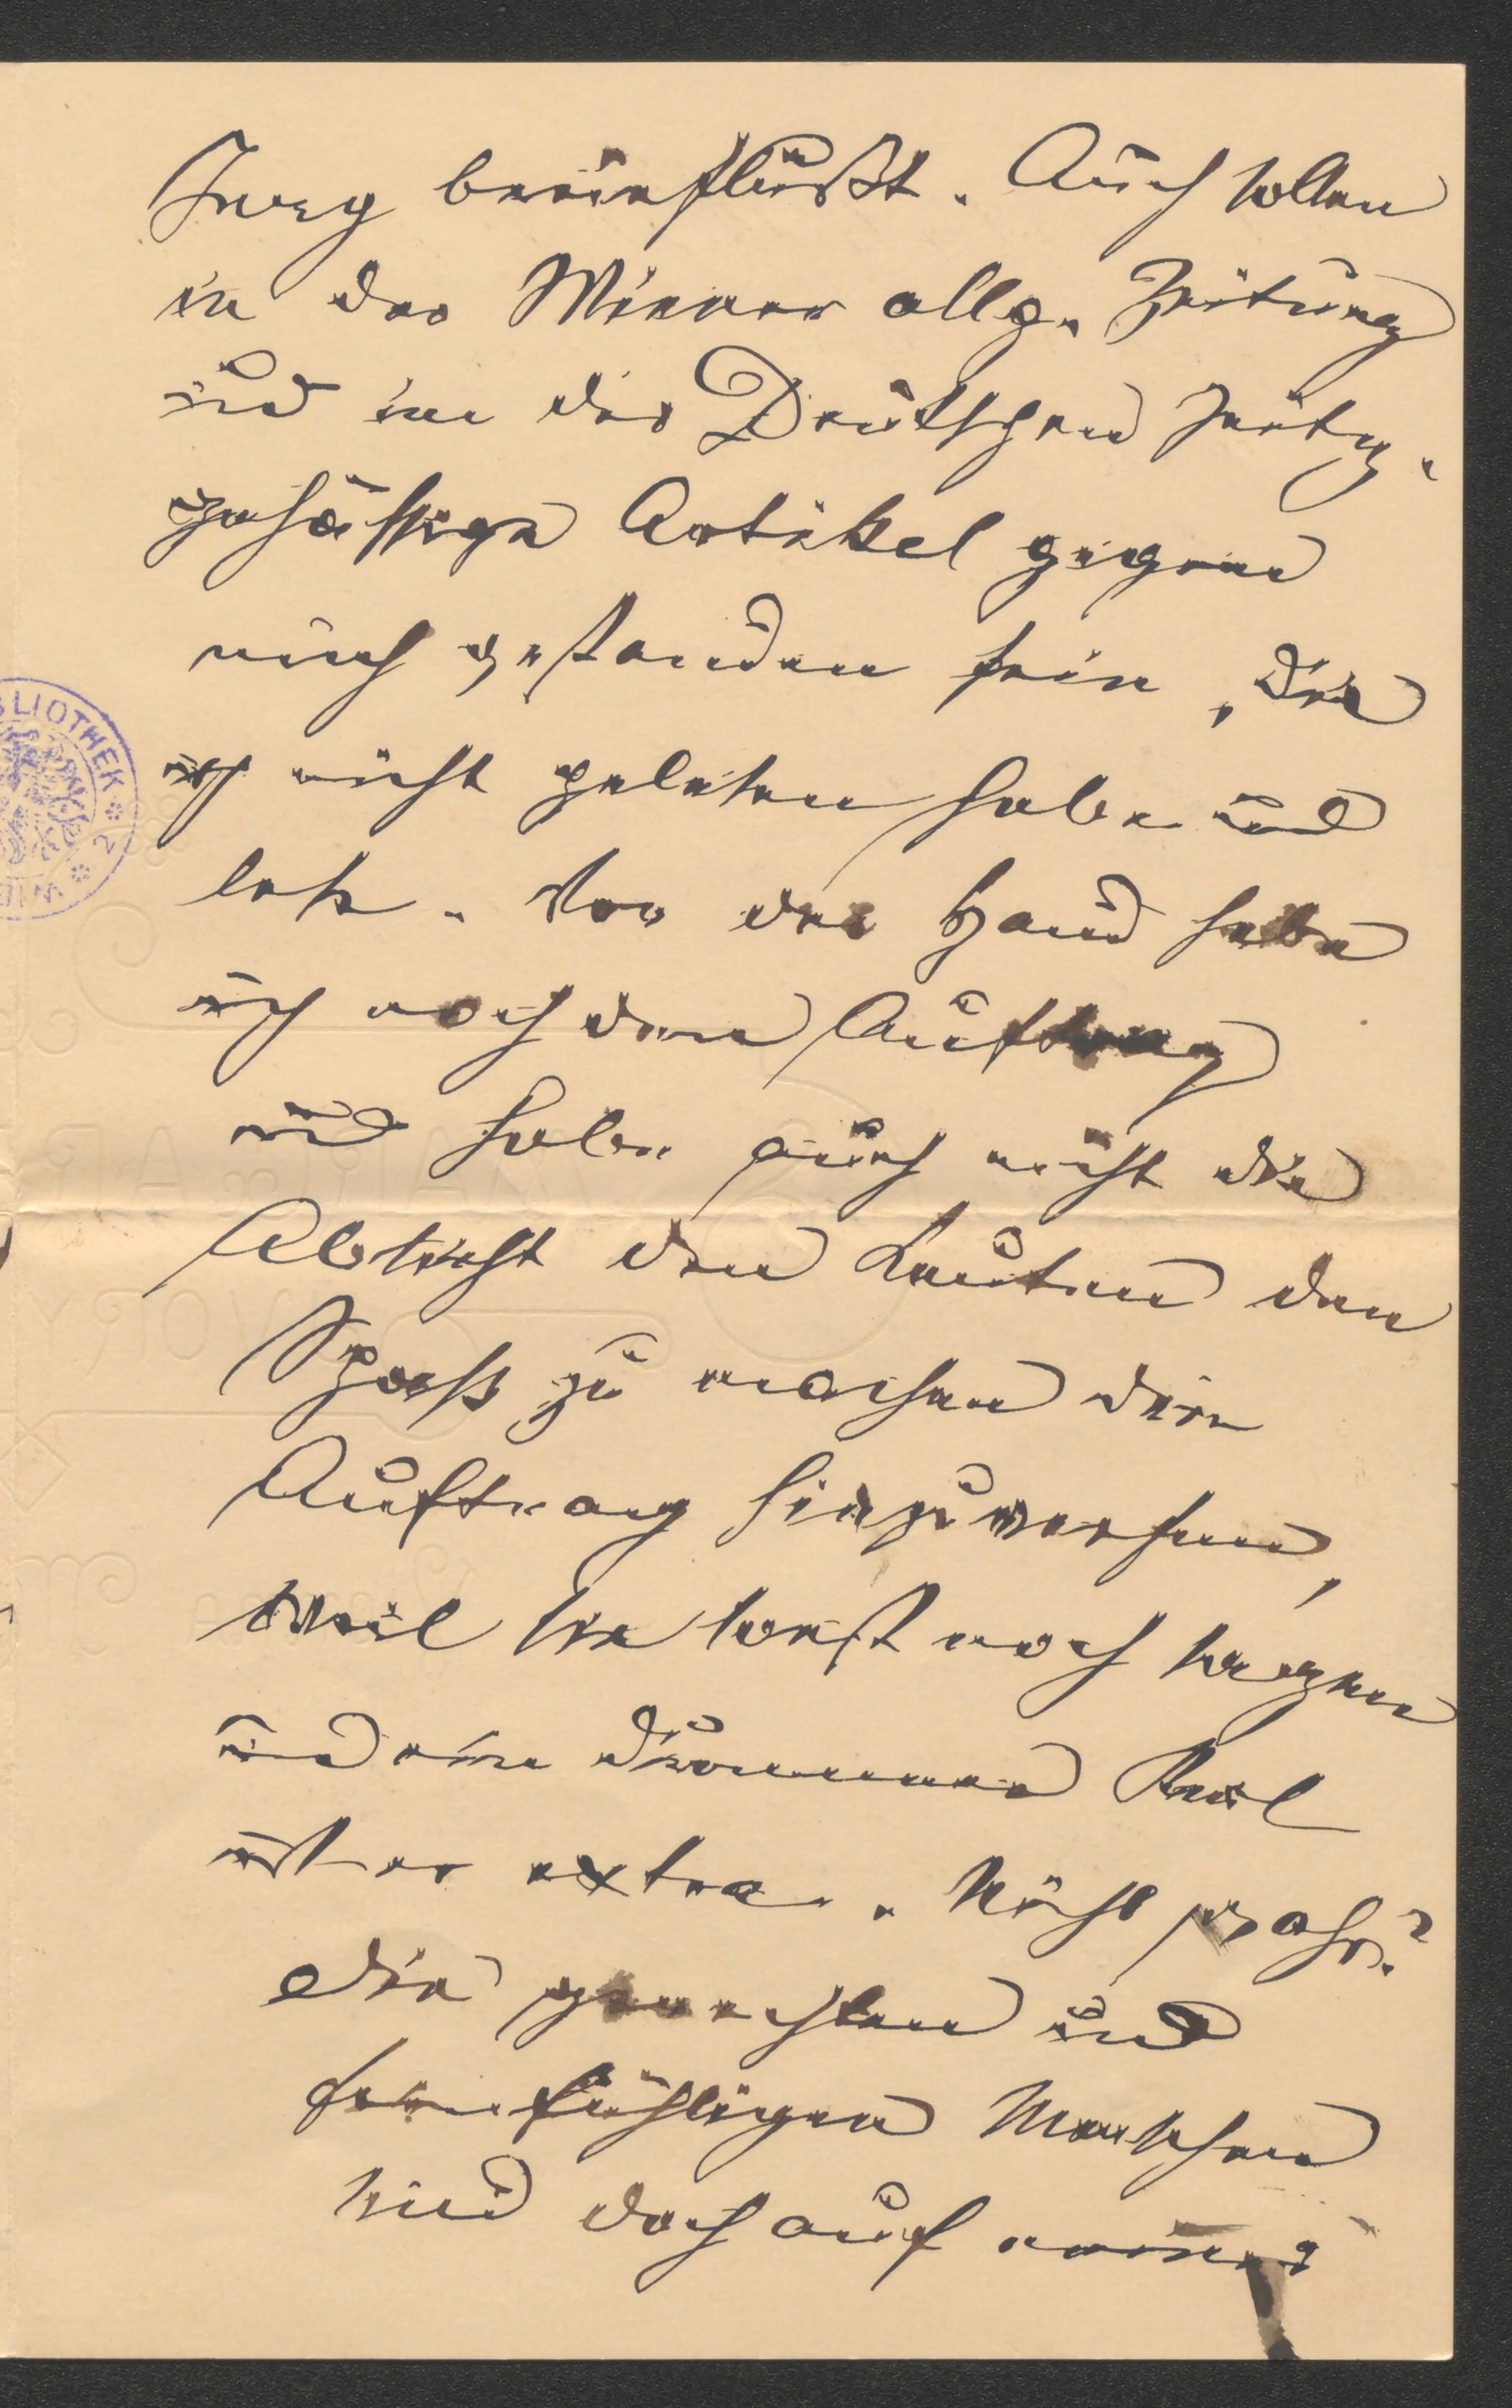 Jury beeinflußt. Auch sollen
in der Wiener allg. Zeitung
und in der Deutschen Zeitg.
gehässige Artikel gegen
mich gestanden sein, die
ich nicht gelesen habe und
lese. Vor der Hand habe
ich noch den Auftrag
und habe auch nicht die
Absicht den Leuten den
Spaß zu machen den
Auftrag hinzuwerfen,
weil sie sonst noch sagen
und ein dummer Kerl
ist er extra. Nicht wahr?
Die gerechten und
feinfühligen Menschen
sind doch auf meiner
BLIOTHEK